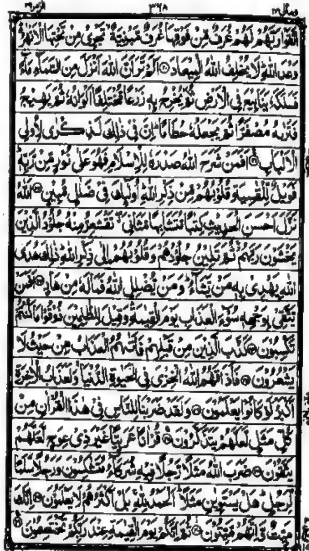 الزمر ٣٩ ٣٦٨ ومالی ٢٣
اتَّقَوْا رَبَّهُمْ لَهُمْ غُرَفٌ مِّنْ فَوْقِهَا غُرَفٌ مَّبْنِيَّةٌ تَجْرِيْ مِنْ تَحْتِهَا الْاَنْهٰرُ
وَعْدَ اللّٰهِ لَا يُخْلِفُ اللّٰهُ الْمِيْعَادَ اَلَمْ تَرَ اَنَّ اللّٰهَ اَنْزَلَ مِنَ السَّمَآءِ مَآءً
فَسَلَكَهٗ يَنَابِيْعَ فِي الْاَرْضِ ثُمَّ يُخْرِجُ بِهٖ زَرْعًا مُّخْتَلِفًا اَلْوَانُهٗ ثُمَّ يَهِيْجُ
فَتَرٰىهُ مُصْفَرًّا ثُمَّ يَجْعَلُهٗ حُطَامًا اِنَّ فِيْ ذٰلِكَ لَذِكْرٰى لِاُولِي
الْاَلْبَابِ اَفَمَنْ شَرَحَ اللّٰهُ صَدْرَهٗ لِلْاِسْلَامِ فَهُوَ عَلٰى نُوْرٍ مِّنْ رَّبِّهٖ
فَوَيْلٌ لِّلْقٰسِيَةِ قُلُوْبُهُمْ مِّنْ ذِكْرِ اللّٰهِ اُولٰٓئِكَ فِيْ ضَلٰلٍ مُّبِيْنٍ اَللّٰهُ
نَزَّلَ اَحْسَنَ الْحَدِيْثِ كِتٰبًا مُّتَشَابِهًا مَّثَانِيَ تَقْشَعِرُّ مِنْهُ جُلُوْدُ الَّذِيْنَ
يَخْشَوْنَ رَبَّهُمْ ثُمَّ تَلِيْنُ جُلُوْدُهُمْ وَقُلُوْبُهُمْ اِلٰى ذِكْرِ اللّٰهِ ذٰلِكَ هُدَى
اللّٰهِ يَهْدِيْ بِهٖ مَنْ يَّشَآءُ وَمَنْ يُّضْلِلِ اللّٰهُ فَمَا لَهٗ مِنْ هَادٍ اَفَمَنْ
يَّتَّقِيْ بِوَجْهِهٖ سُوْٓءَ الْعَذَابِ يَوْمَ الْقِيٰمَةِ وَقِيْلَ لِلظّٰلِمِيْنَ ذُوْقُوْا مَا كُنْتُمْ
تَكْسِبُوْنَ كَذَّبَ الَّذِيْنَ مِنْ قَبْلِهِمْ فَاَتٰىهُمُ الْعَذَابُ مِنْ حَيْثُ لَا
يَشْعُرُوْنَ فَاَذَاقَهُمُ اللّٰهُ الْخِزْيَ فِي الْحَيٰوةِ الدُّنْيَا وَلَعَذَابُ الْاٰخِرَةِ
اَكْبَرُ لَوْ كَانُوْا يَعْلَمُوْنَ وَلَقَدْ ضَرَبْنَا لِلنَّاسِ فِيْ هٰذَا الْقُرْاٰنِ مِنْ
كُلِّ مَثَلٍ لَّعَلَّهُمْ يَتَذَكَّرُوْنَ قُرْاٰنًا عَرَبِيًّا غَيْرَ ذِيْ عِوَجٍ لَّعَلَّهُمْ
يَتَّقُوْنَ ضَرَبَ اللّٰهُ مَثَلًا رَّجُلًا فِيْهِ شُرَكَآءُ مُتَشٰكِسُوْنَ وَرَجُلًا سَلَمًا
لِّرَجُلٍ هَلْ يَسْتَوِيٰنِ مَثَلًا اَلْحَمْدُ لِلّٰهِ بَلْ اَكْثَرُهُمْ لَا يَعْلَمُوْنَ اِنَّكَ
مَيِّتٌ وَّاِنَّهُمْ مَّيِّتُوْنَ ثُمَّ اِنَّكُمْ يَوْمَ الْقِيٰمَةِ عِنْدَ رَبِّكُمْ تَخْتَصِمُوْنَ